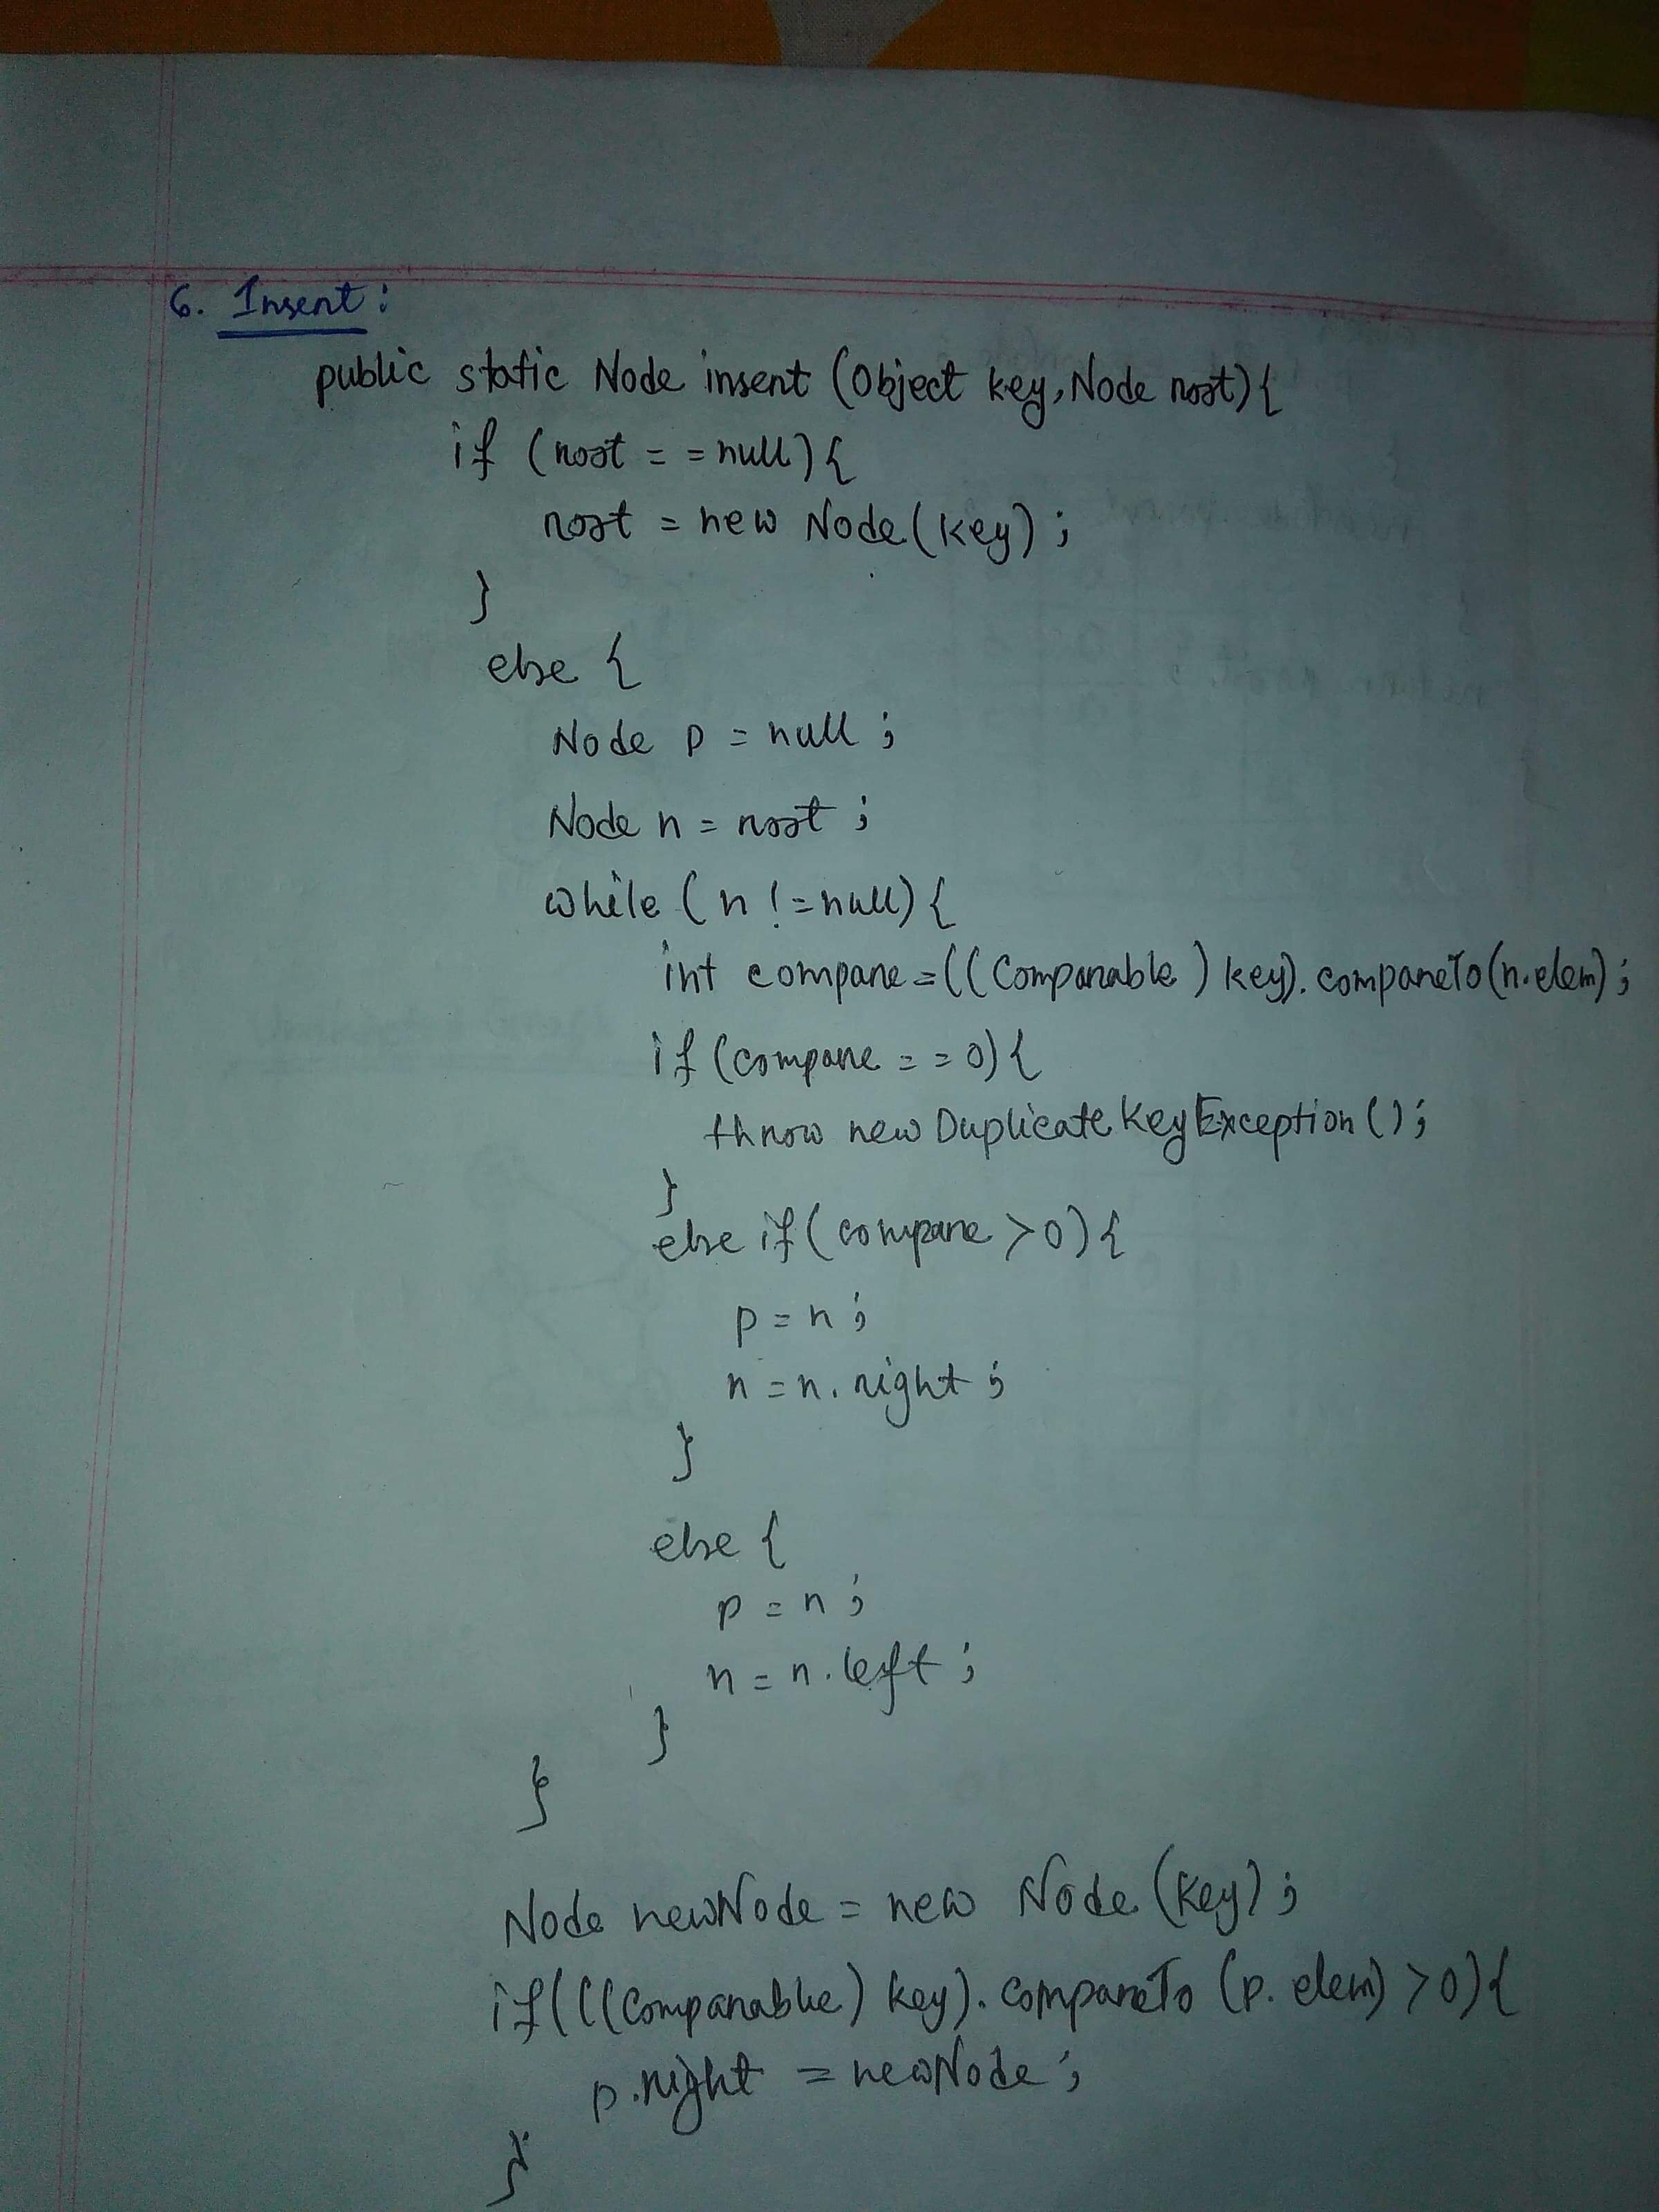 6. Insert:
public static Node insert (Object key, Node root){
if (root == null){
root = new Node(key);
}
else {
Node p = null;
Node n = root;
while (n != null){
int compare = ((Comparable) key).compareTo(n.elem);
if (compare == 0){
throw new DuplicateKeyException();
}
else if (compare > 0){
p = n;
n = n.right;
}
else {
p = n;
n = n.left;
}
}
Node newNode = new Node (key);
if(((Comparable) key).compareTo (p.elem) > 0){
p.right = newNode;
}